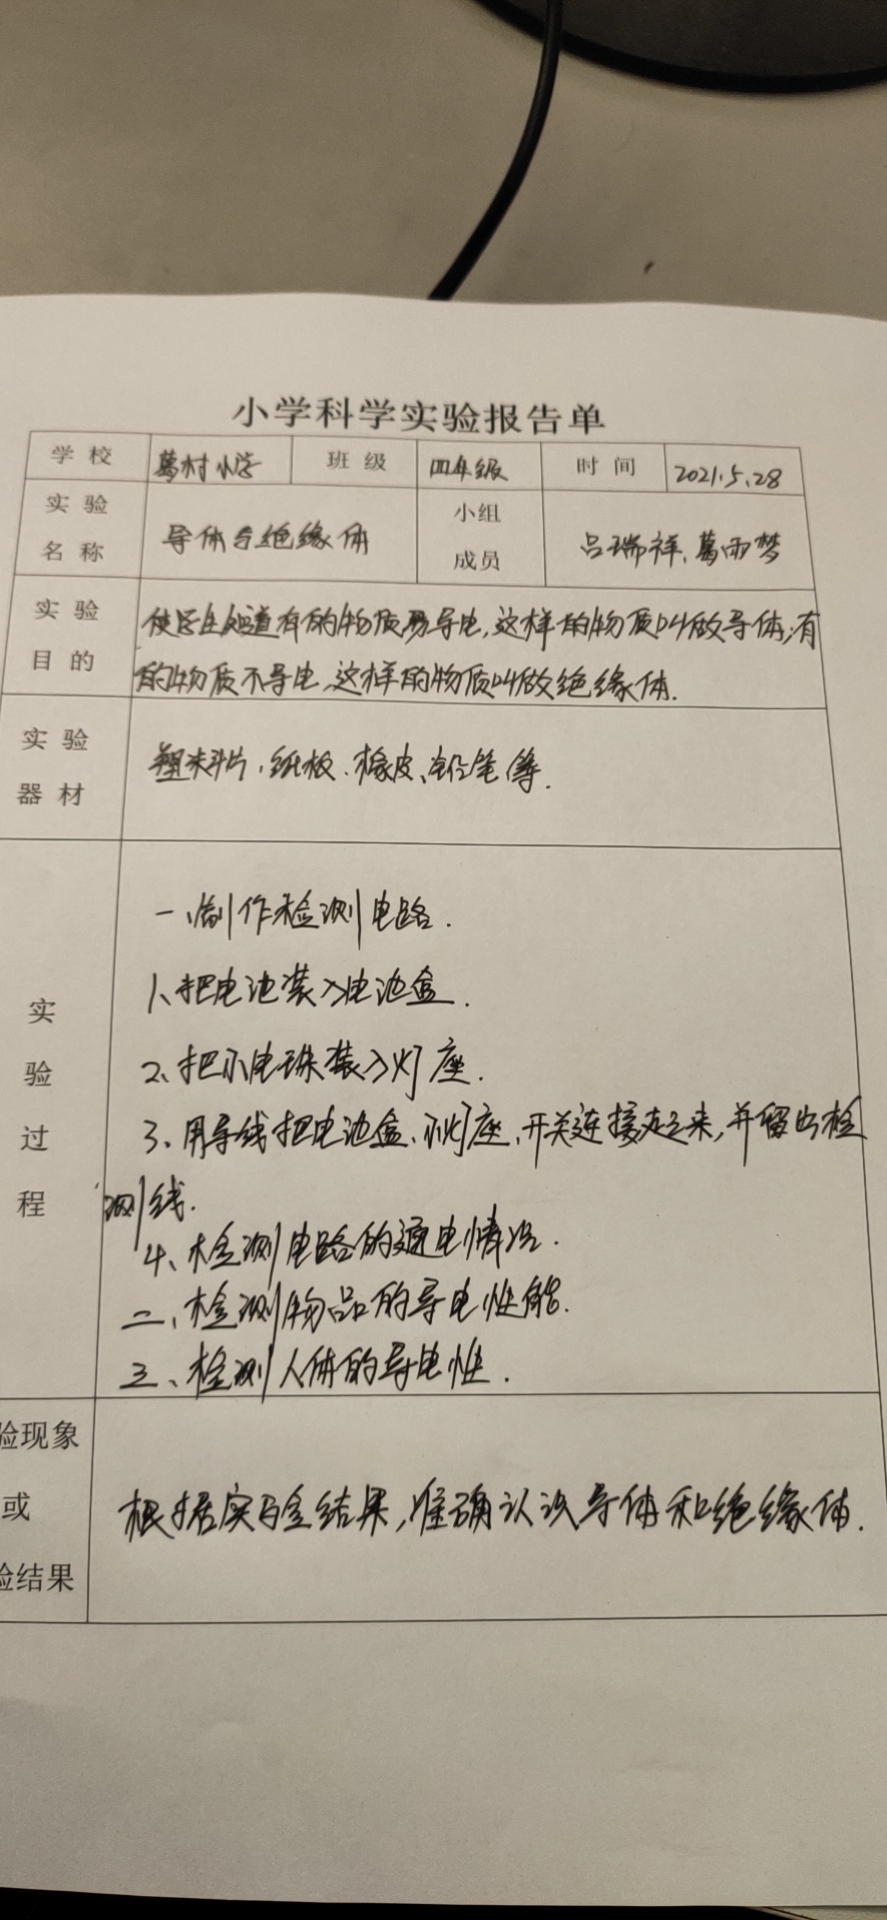 小学科学实验报告单
学校 葛村小学 班级 四年级 时间 2021.5.28
实验名称 导体与绝缘体 小组成员 吕瑞祥、葛雨梦
实验目的 使学生知道有的物质易导电,这样的物质叫做导体;有
的物质不导电,这样的物质叫做绝缘体.
实验器材 塑料片、纸板、橡皮、铅笔等.
实验过程
一、制作检测电路.
1、把电池装入电池盒.
2、把小电珠装入灯座.
3、用导线把电池盒、小灯座、开关连接起来,并留出检
测线.
4、检测电路的通电情况.
二、检测物品的导电性能.
三、检测人体的导电性.
验现象
或
验结果
根据实验结果,准确认识导体和绝缘体.